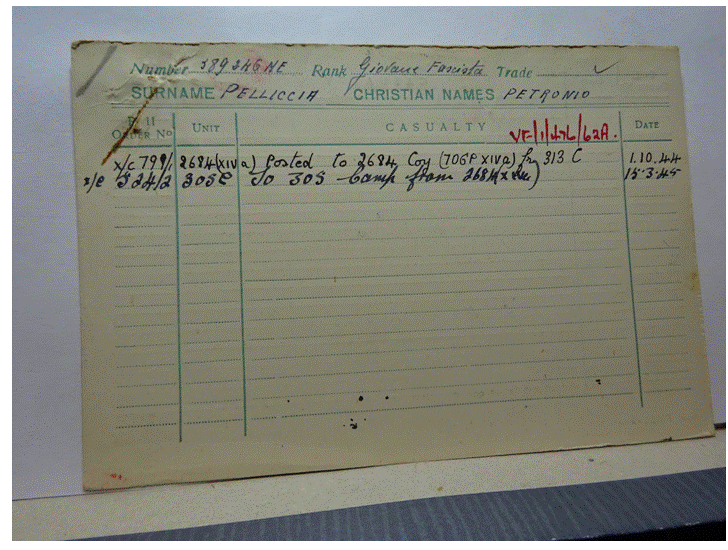 Number 289246 NE Rank Giovane Fascista Trade
SURNAME PELLICCIA CHRISTIAN NAMES PETRONIO
P. II ORDER No UNIT CASUALTY VF/1/476/62A. DATE
x/c 799/ 2684(XIVa) Posted to 2684 Coy (70GP XIVa) fr 313 C 1.10.44
x/c 324/2 305C To 305 Camp from 2684 15.3.45